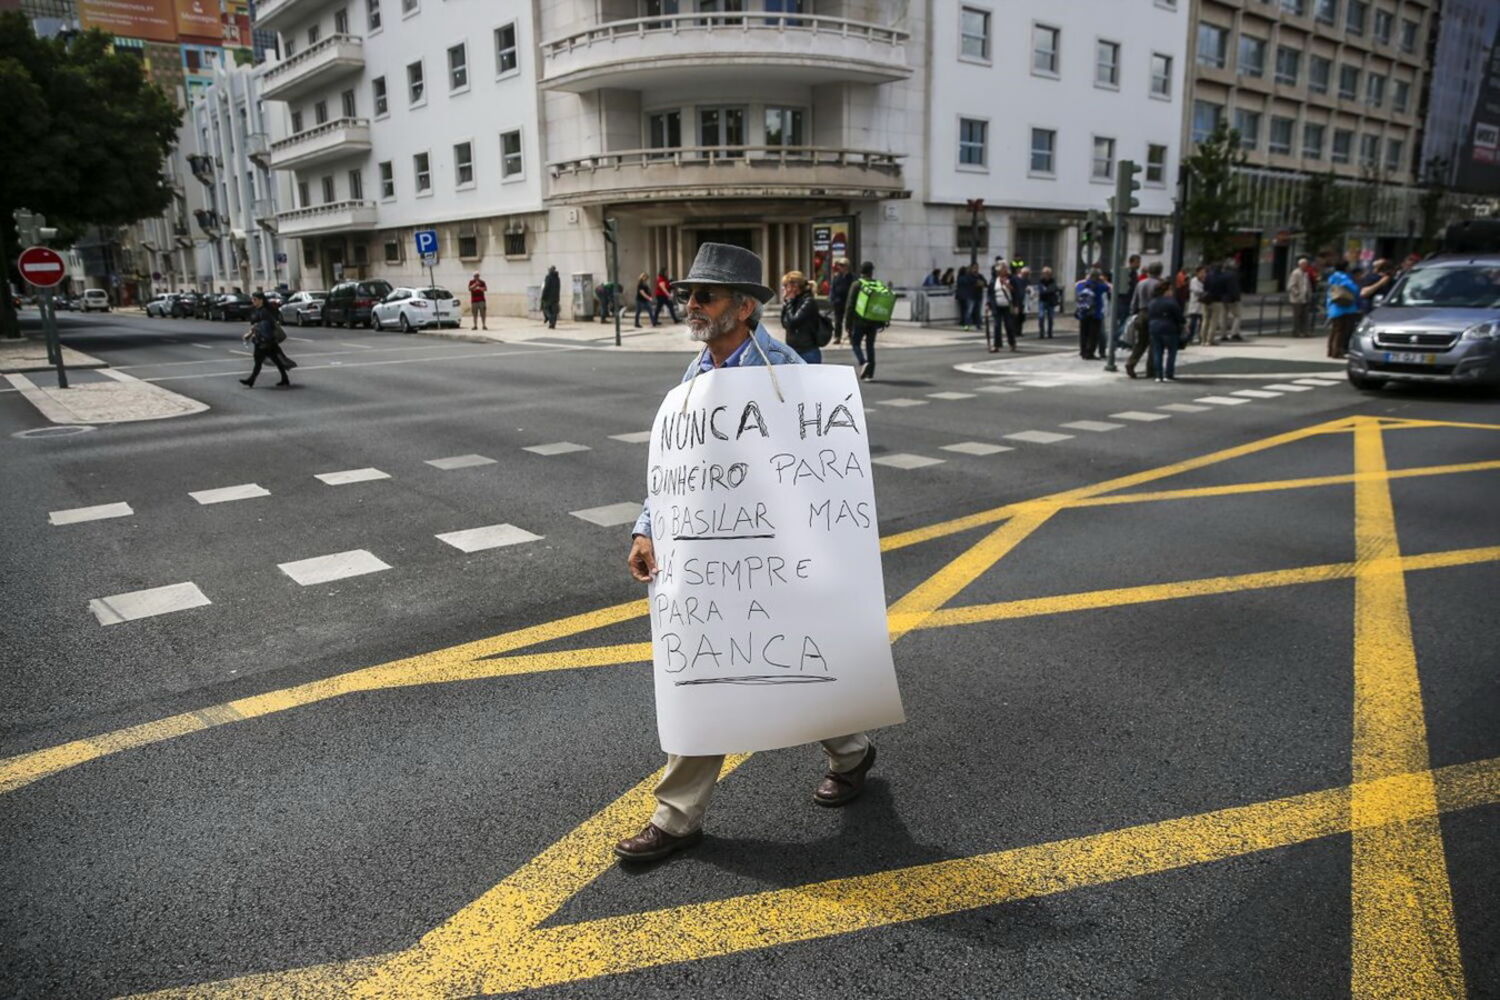 NUNCA HÁ
DINHEIRO PARA
O BASILAR MAS
HÁ SEMPRE
PARA A
BANCA
P